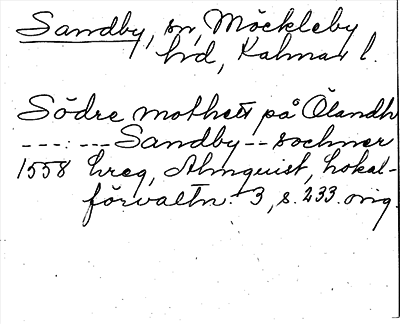 Sandby, sn, Möckleby
hd, Kalmar l.
Södre mothett på Ölandh
---:---Sandby--sochner
1558 hreg, Almquist, Lokal-
förvaltn. 3, s. 233. orig.